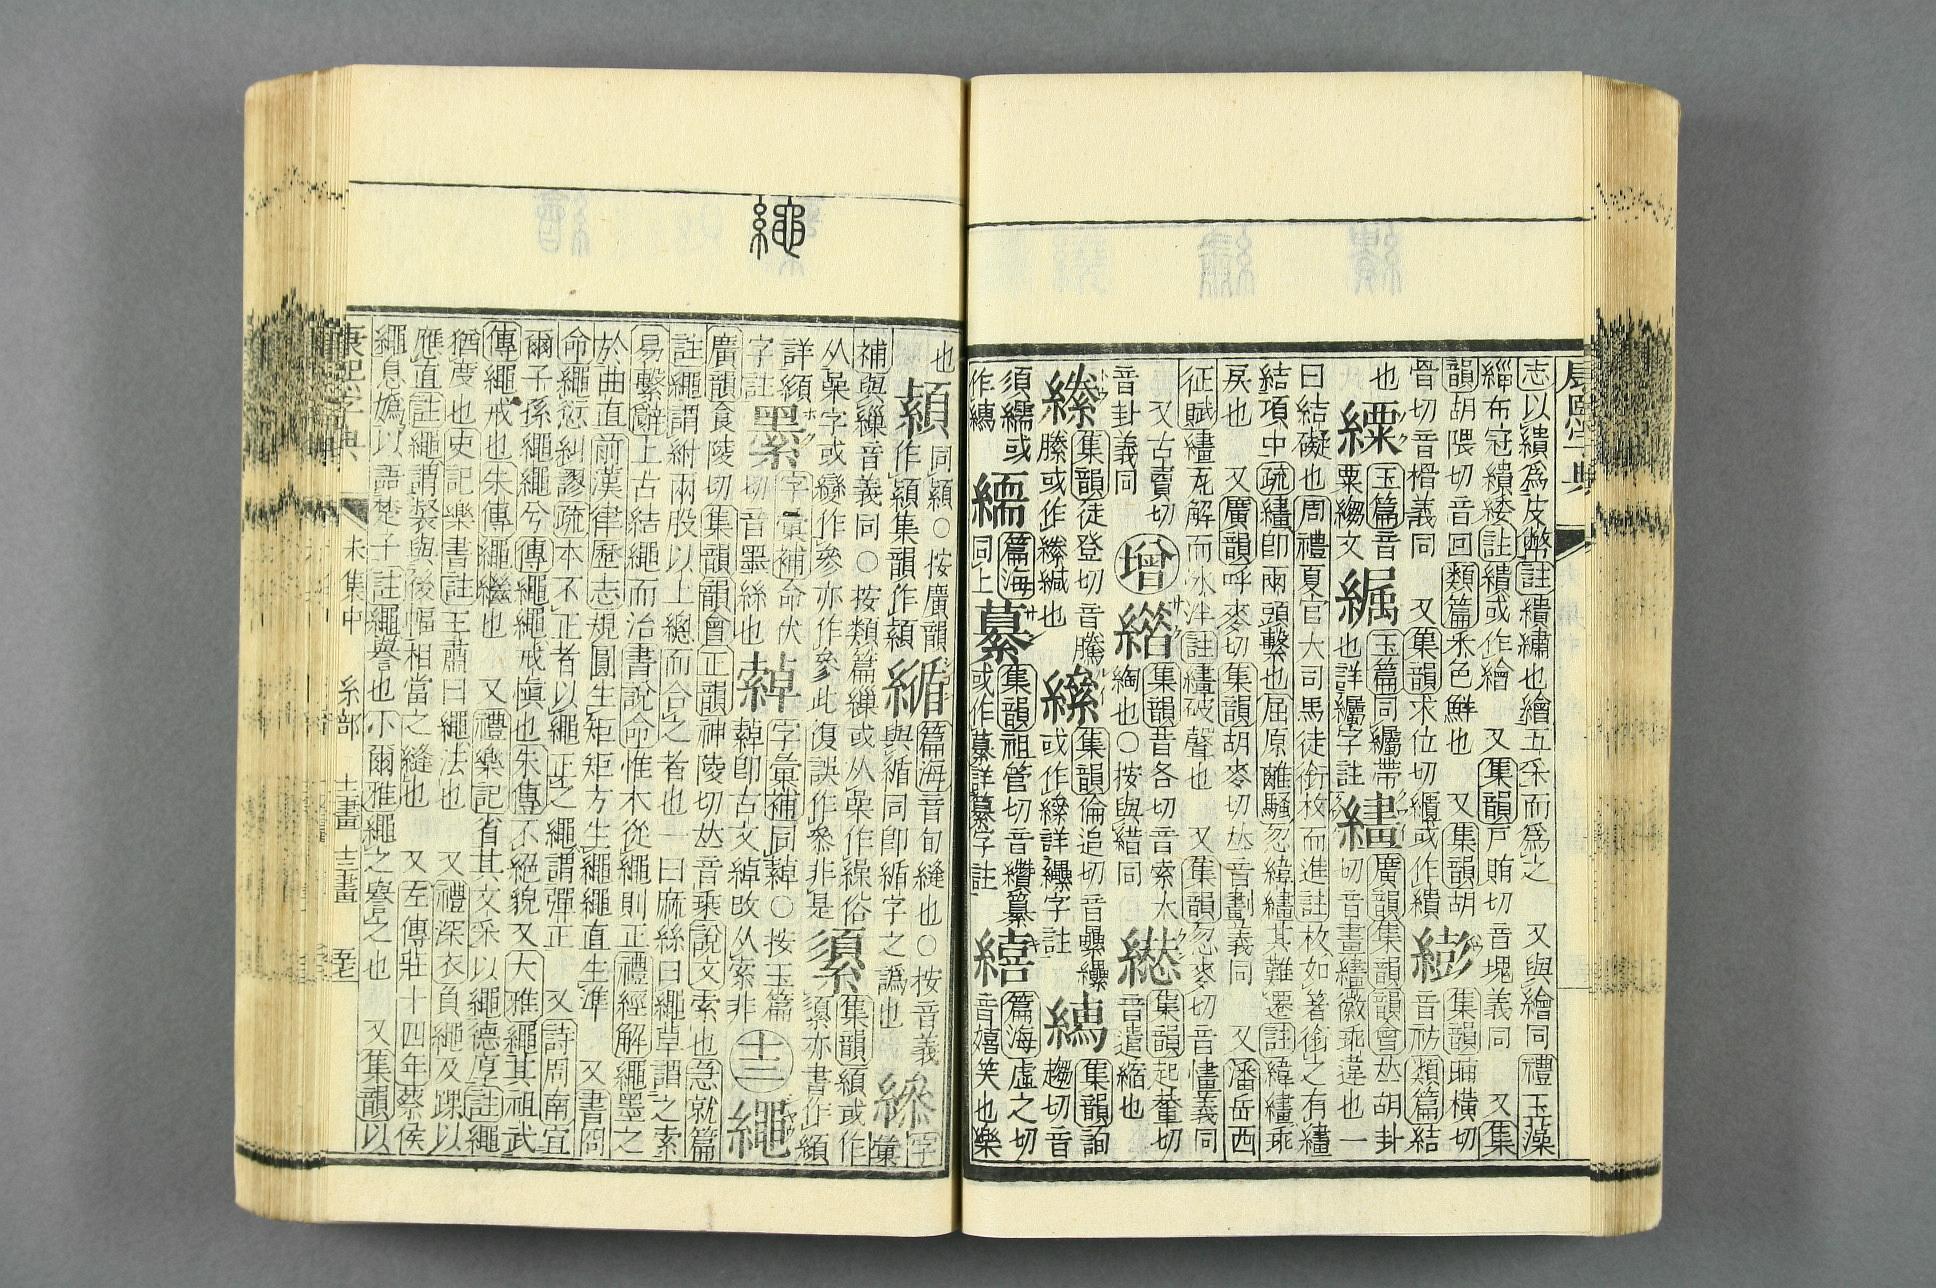 志以繢爲皮幣註繢繡也繪五采而爲之　又與繪同禮玉藻
緇布冠繢緌註繢或作繪　又集韻戸賄切音塊義同　又集
韻胡隈切音回類篇采色鮮也　又集韻胡
骨切音榾義同　又集韻求位切櫃或作繢
集韻晡橫切
音祊類篇結
也
玉篇音
粟縐文
玉篇同纗帶
也詳纗字註
繣
廣韻集韻韻會𠀤胡卦
切音畫繣徽乖違也一
曰結礙也周禮夏官大司馬徒銜枚而進註枚如箸銜之有繣
結項中疏繣卽兩頭繫也屈原離騷忽緯繣其難遷註緯繣乖
戾也　又廣韻呼麥切集韻胡麥切𠀤音劃義同　又潘岳西
征賦繣瓦解而冰泮註繣破聲也　又集韻忽麥切音懂義同
又古賣切
音卦義同
增
集韻音各切音索大
綯也○按與縒同
集韻起輦切
音遣縮也
集韻徒登切音騰
縢或作縢緘也
集韻倫追切音纍纝
或作縲詳纝字註
集韻詢
趨切音
須繻或
作繑
繻
篇海
同上
纂
集韻祖管切音纘纂
或作纂詳纂字註
繥
篇海虛之切
音嬉笑也樂
也
纇
同纇○按廣韻
作纇集韻作纇
篇海音旬縫也○按音義
與循同卽循字之譌也
字彙
補與繰音義同○按類篇繰或从喿作繰俗
从喿字或變作參亦作叅此復誤作叅非是
集韻纇或作
須亦書作纇
詳纇
字註
纆
字彙補命伏
切音墨絲也
字彙補同綽○按玉篇
綽卽古文綽改从索非
繩
廣韻食陵切集韻韻會正韻神陵切𠀤音乘說文索也急就篇
註繩謂紨兩股以上總而合之者也一曰麻絲曰繩草謂之索
易繫辭上古結繩而治書說命惟木從繩則正禮經解繩墨之
於曲直前漢律歷志規圓生矩矩方生繩繩直生準　又書冏
命繩愆糾謬疏本不正者以繩正之繩謂彈正　又詩周南宜
爾子孫繩繩兮傳繩繩戒愼也朱傳不絕貌又大雅繩其祖武
傳繩戒也朱傳繩繼也　又禮樂記省其文采以繩德厚註繩
猶度也史記樂書註王肅曰繩法也　又禮深衣負繩及踝以
應直註繩謂裻與後幅相當之縫也　又左傳莊十四年蔡侯
繩息嬀以語楚子註繩譽也小爾雅繩之譽之也　又集韻以
康熙字典　未集中　糸部